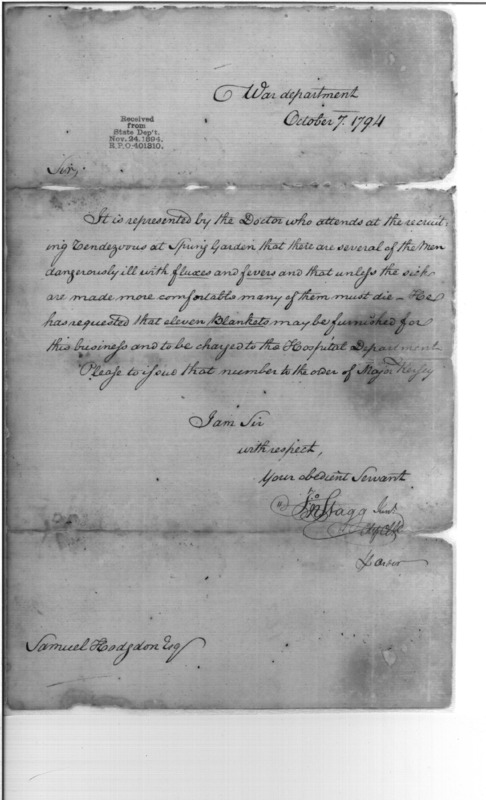 War department
October 7. 1794
Received
from
State Dep't.
Nov. 24. 1894.
R.P.O. 401310.
Sir,
It is represented by the Doctor who attends at the recruit-
ing Rendezvous at Spring Garden that there are several of the men
dangerously ill with fluxes and fevers and that unless the sick
are made more comfortable many of them must die – He
has requested that eleven Blankets may be furnished for
this business and to be charged to the Hospital Department
Please to issue that number to the order of Major Kersey
I am Sir
with respect,
Your obedient Servant
Jno Stagg Junr.
Samuel Hodgdon Esq